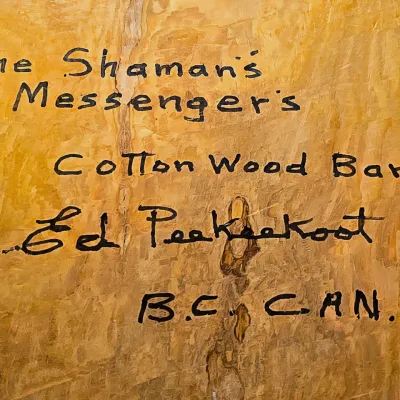 he Shaman's
Messenger's
Cotton Wood Bar
Ed Peekeekoot
B.C. CAN.